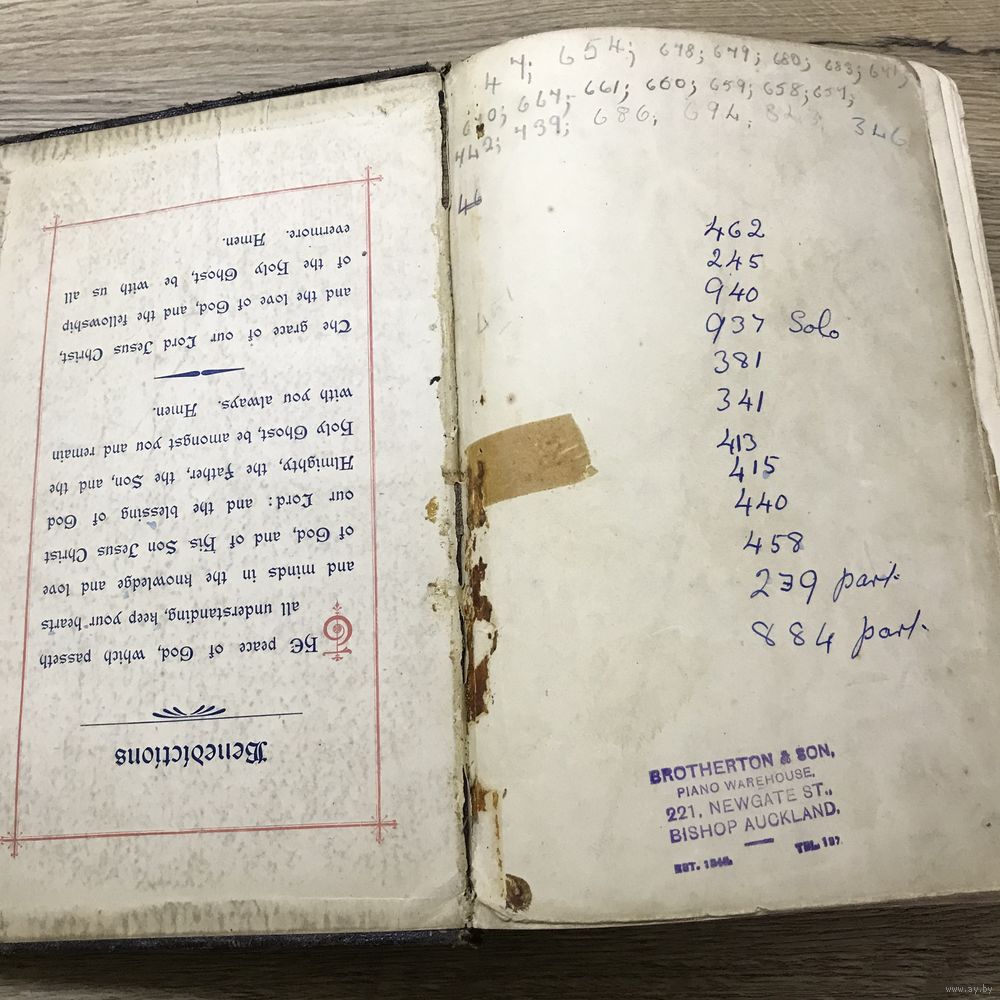 Benedictions
THE peace of God, which passeth
all understanding, keep your hearts
and minds in the knowledge and love
of God, and of His Son Jesus Christ
our Lord: and the blessing of God
Almighty, the Father, the Son, and the
Holy Ghost, be amongst you and remain
with you always. Amen.
The grace of our Lord Jesus Christ,
and the love of God, and the fellowship
of the Holy Ghost, be with us all
evermore. Amen.
47; 654; 678; 679; 680; 683;
667; 661; 660; 659; 658; 657;
442; 439; 686; 694; 346
46
462
245
940
937 Solo
381
341
413
415
440
458
239 part.
884 part.
BROTHERTON & SON,
PIANO WAREHOUSE,
221, NEWGATE ST.,
BISHOP AUCKLAND.
EST. TEL. 197.
www.ay.by